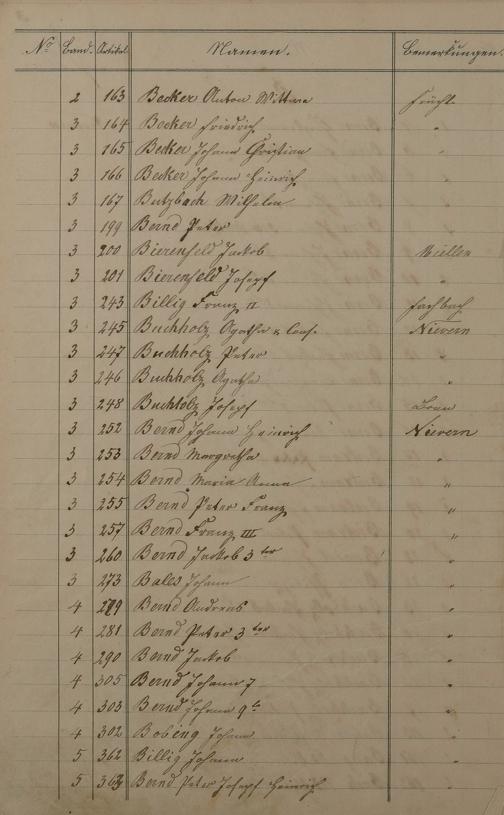 No Band. Artikel Namen. Bemerkungen.
2 163 Becker Anton Wittwe Frücht
3 164 Becker Friedrich "
3 165 Becker Johann Christian "
3 166 Becker Johann Heinrich "
3 167 Butzbach Wilhelm "
3 199 Bernd Peter "
3 200 Bierenfeld Jackob Miellen
3 201 Bierenfeld Josepf "
3 243 Billig Franz II Fachbach
3 245 Buchholz Agatha & Cons. Nievern
3 247 Buchholz Peter "
3 246 Buchholz Agatha "
3 248 Buchholz Josepf
3 252 Bernd Johann Heinrich Nievern
3 253 Bernd Margretha "
3 254 Bernd Maria Anna "
3 255 Bernd Peter Franz "
3 257 Bernd Franz III "
3 260 Bernd Jackob 3ter "
3 273 Bales Johann "
4 279 Bernd Andreas "
4 281 Bernd Peter 3ter "
4 290 Bernd Jackob "
4 305 Bernd Johann 7 "
4 303 Bernd Johann 9te "
4 302 Bobeng Johann "
5 362 Billig Johann "
5 363 Bernd Peter Josepf Heinrich "